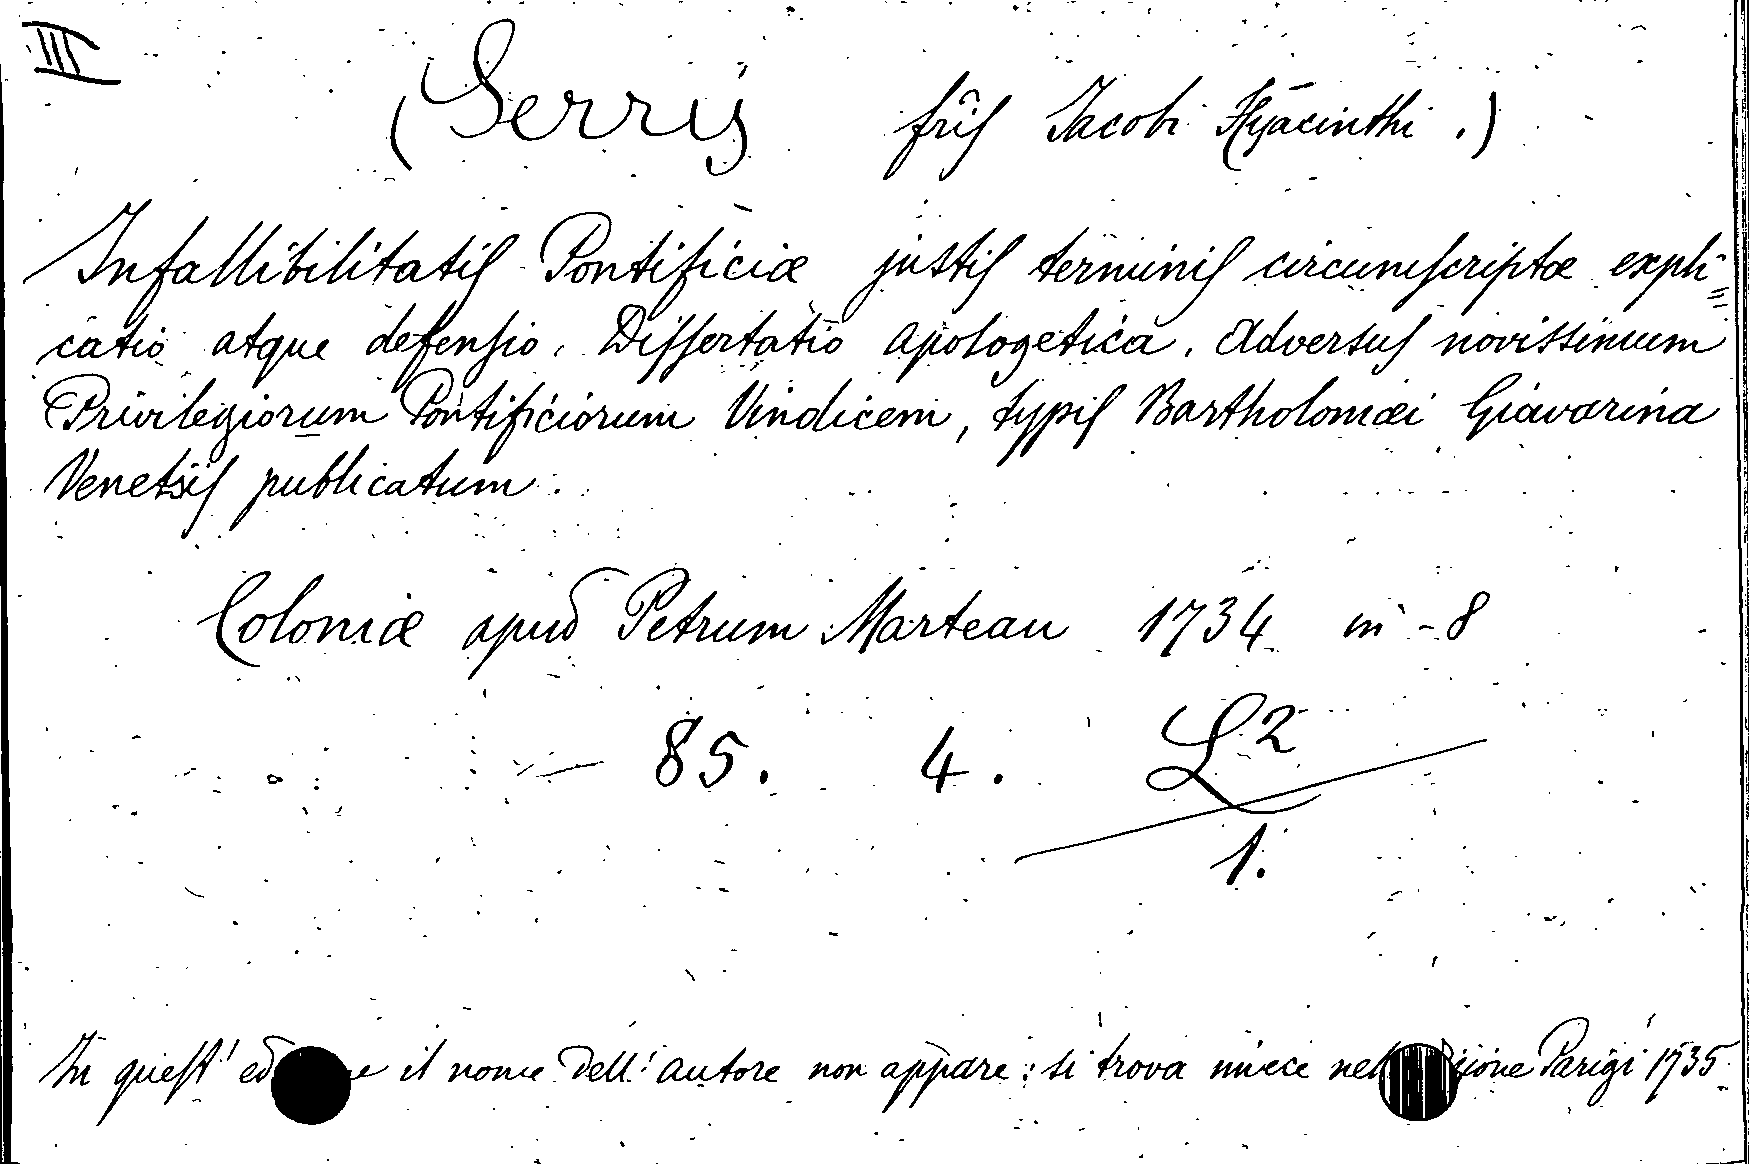 III
(Serrij frĩs Jacobi Hyacinthi.)
Infallibilitatis Pontificiæ justis terminis circumscriptæ expli=
catio atque defensio. Dissertatio apologetica. Adversus novissimum
Privilegiorum Pontificiorum Vindicem, typis Bartholomæi Giavarina
Venetiis publicatum.
Coloniæ apud Petrum Marteau 1734 in-8
85. 4. L2
1.
In quest' il nome dell'autore non appare: si trova invece Parigi 1735